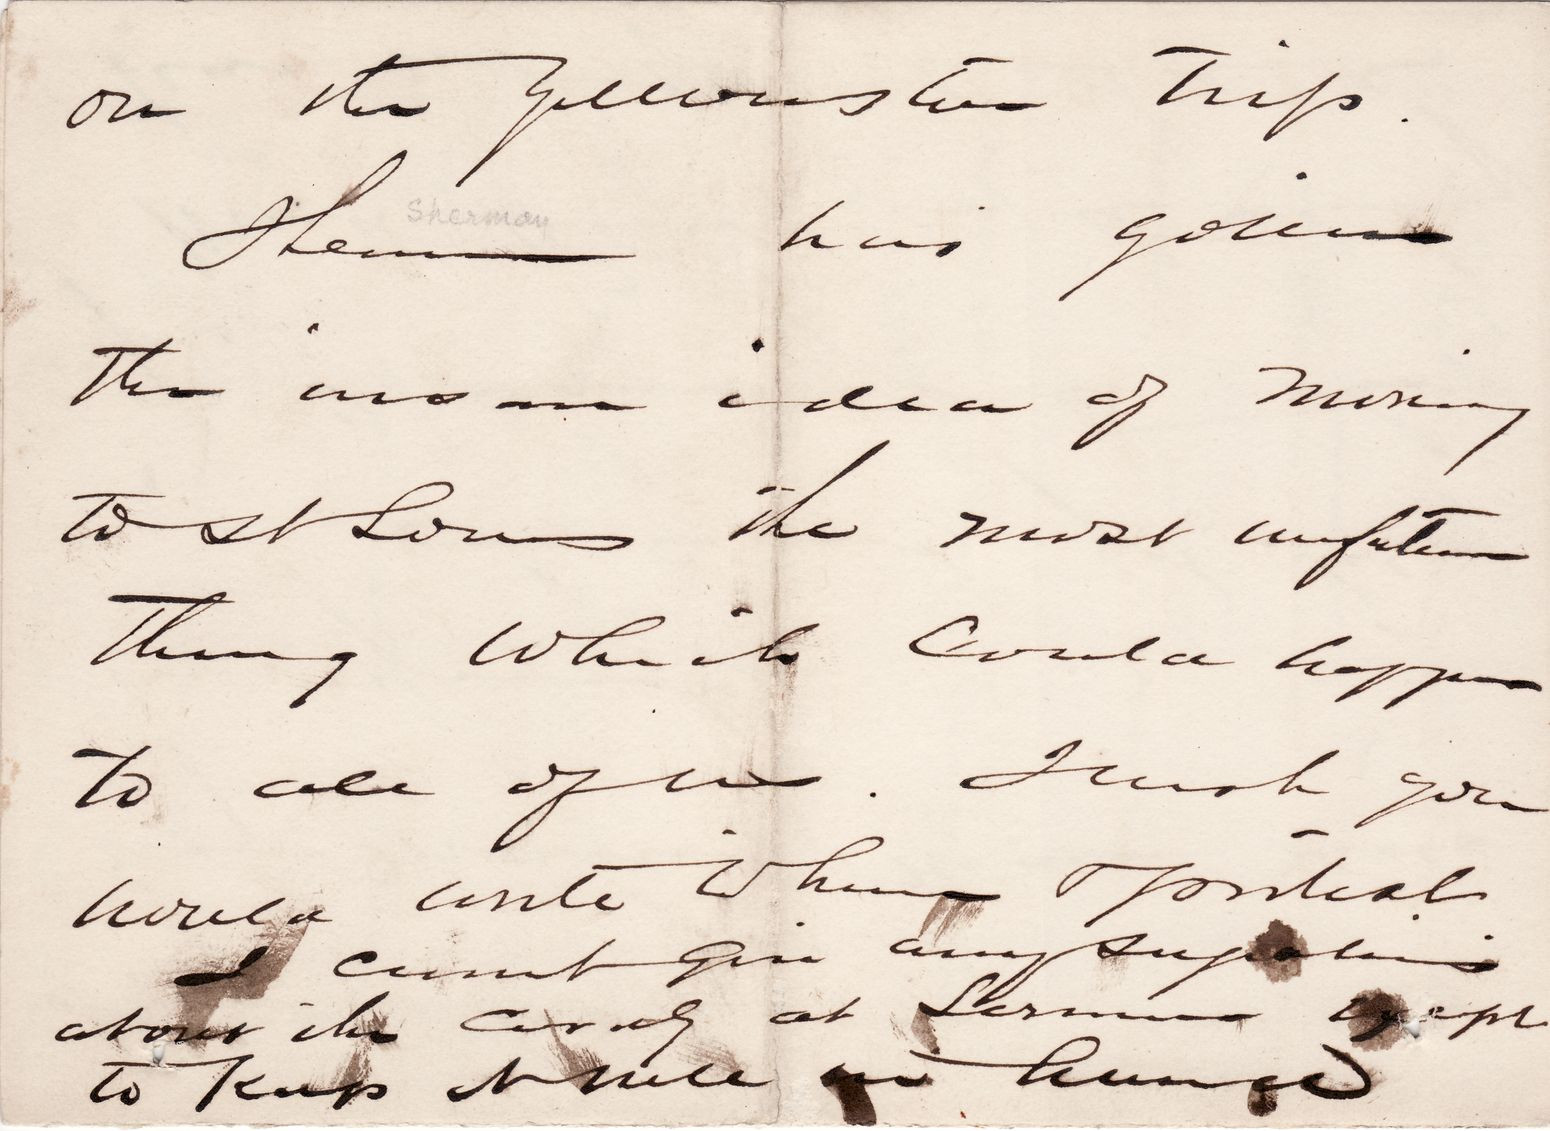 on the Yellowstone trip.
Sherman
Sherman has gotten
the insane idea of moving
to St Louis the most unfortun
thing which could happen
to all of us. I wish you
would write when
I cannot give any suggestions
about the at Larned except
to keep it well in hand